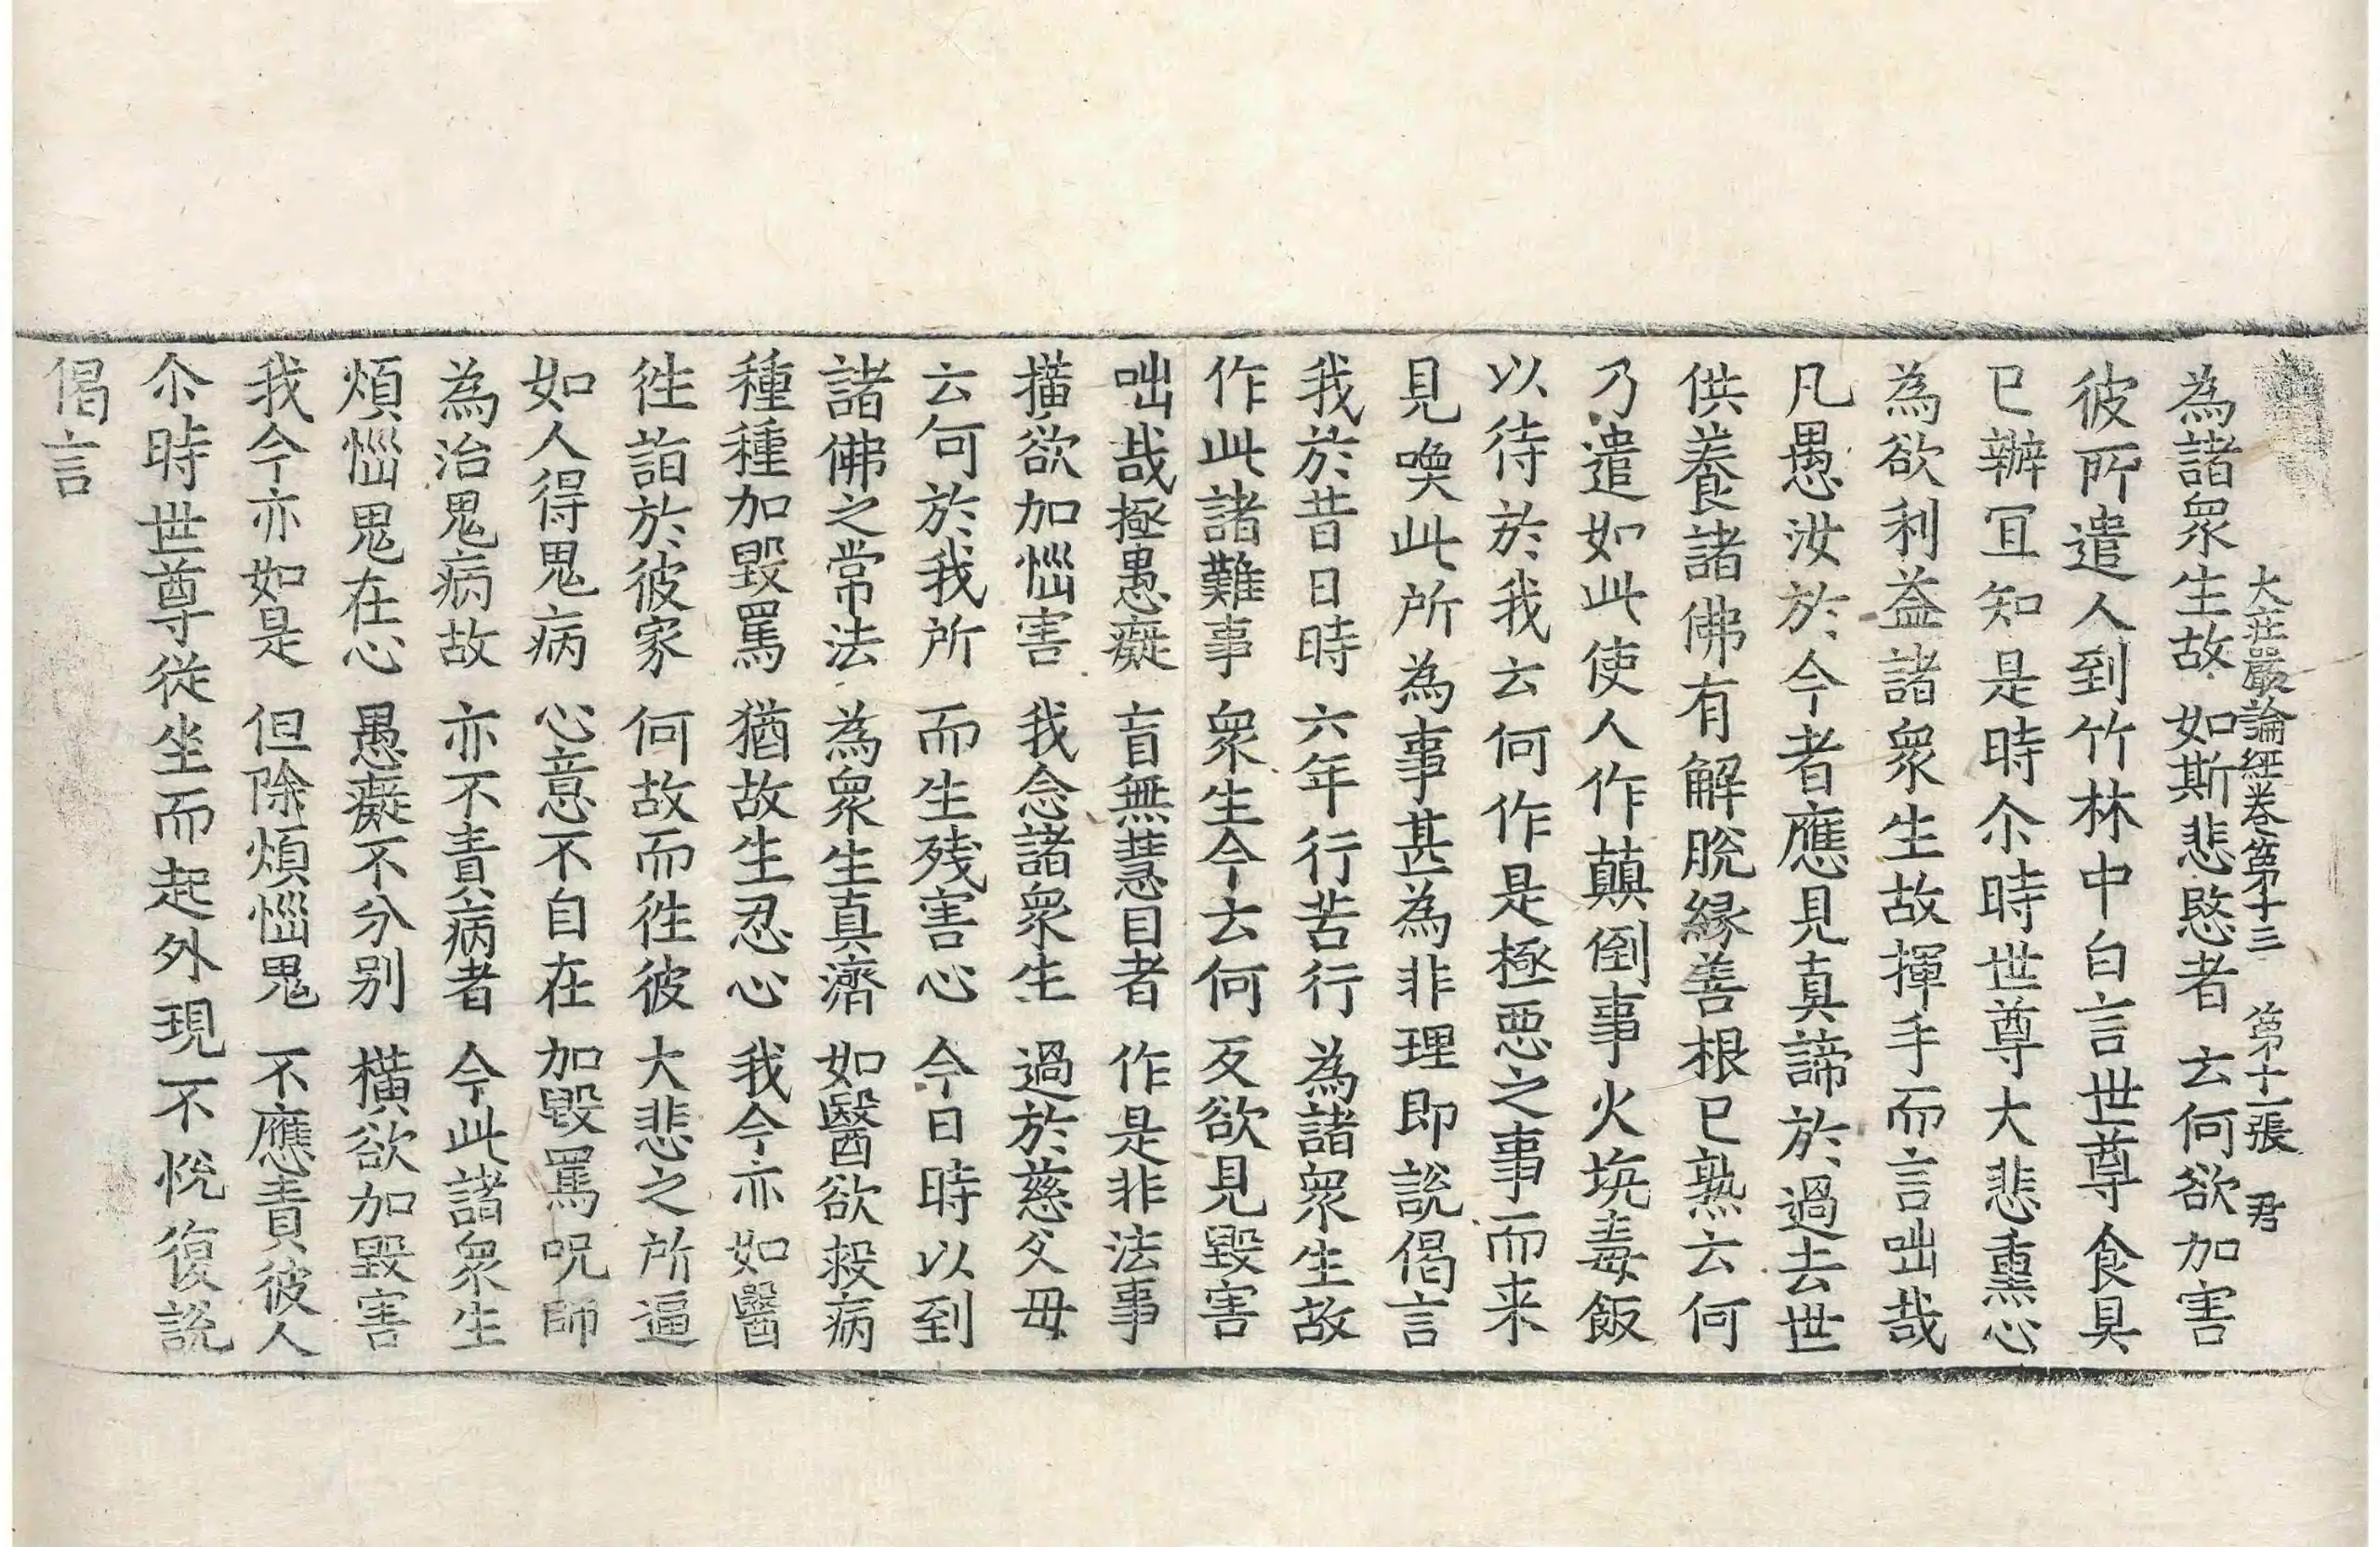 大莊嚴論經卷第十三 第十一張 君
為諸衆生故 如斯悲愍者 云何欲加害
彼所遣人到竹林中白言世尊食具
已辦冝知是時尒時世尊大悲熏心
為欲利益諸衆生故揮手而言咄哉
凡愚汝於今者應見真諦於過去世
供養諸佛有解脫緣善根已熟云何
乃遣如此使人作蘱倒事火坑毒飯
以待於我云何作是極惡之事而来
見喚此所為事甚為非理即說偈言
我於昔日時 六年行苦行 為諸衆生故
作此諸難事 衆生今云何 反欲見毀害
咄哉極愚癡 盲無慧目者 作是非法事
撗欲加惱害 我念諸衆生 過於慈父母
云何於我所 而生残害心 今日時以到
諸佛之常法 為衆生真濟 如醫欲救病
種種加毀罵 猶故生忍心 我今亦如醫
往詣於彼家 何故而往彼 大悲之所逼
如人得鬼病 心意不自在 加毀罵呪師
為治鬼病故 亦不責病者 今此諸衆生
煩惱鬼在心 愚癡不分别 橫欲加毀害
我今亦如是 但除煩惱鬼 不應責彼人
尒時世尊從坐而起外現不悅復說
偈言